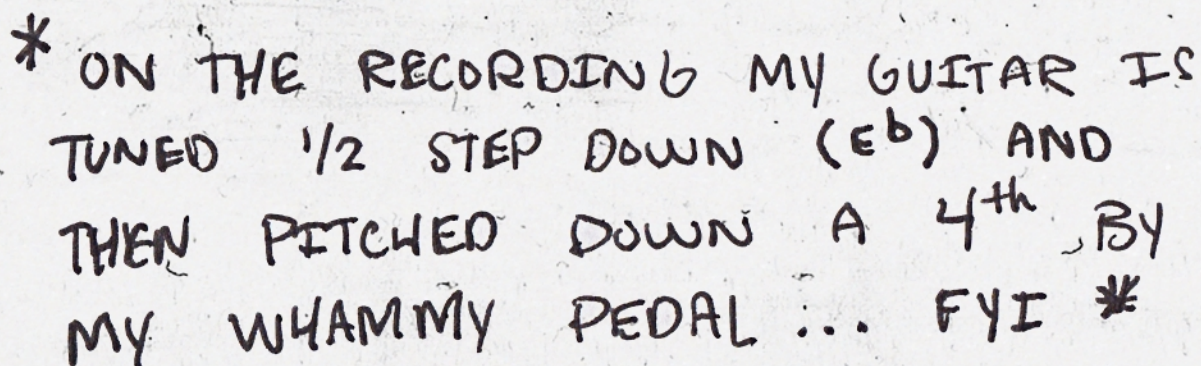 * ON THE RECORDING MY GUITAR IS
TUNED 1/2 STEP DOWN (Eb) AND
THEN PITCHED DOWN A 4th BY
MY WHAMMY PEDAL... FYI *